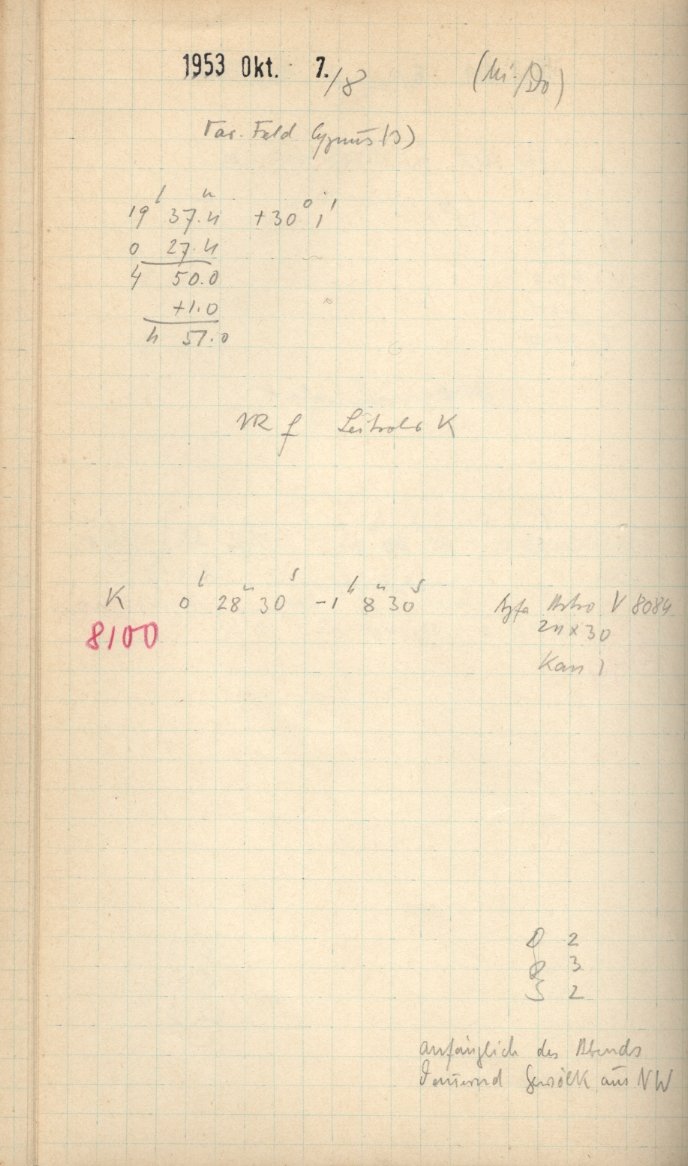 1953 Okt. 7./8 (Mi./Do)
Var. Feld Cygnus (3)
19h 37.4m +30° 1'
0 27.4
4 50.0
+1.0
4 51.0
VR f Leitrohr K
K 0h 28m 30s -1h 8m 30s
8100
Agfa Astro V 8084
24x30
Kan 1
D 2
3
S 2
anfänglich des Abends
dauernd Gewölk aus NW